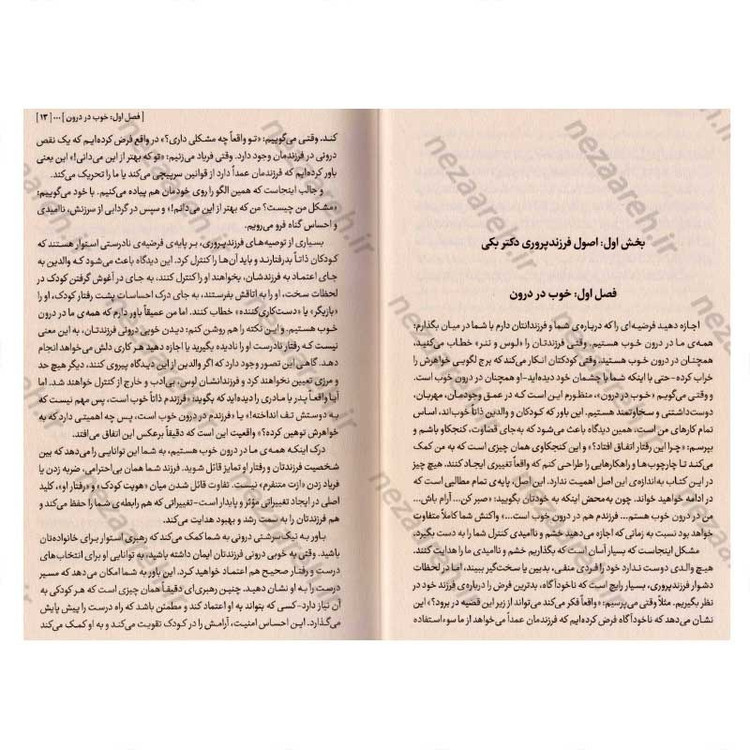 بخش اول: اصول فرزندپروری دکتر بکی
فصل اول: خوب در درون
اجازه دهید فرضیه‌ای را که درباره‌ی شما و فرزندانتان دارم با شما در میان بگذارم:
همه‌ی ما در درون خوب هستیم. وقتی فرزندتان را «لوس و ننر» خطاب می‌کنید،
همچنان در درون خوب هستید. وقتی کودکتان انکار می‌کند که برج لگویی خواهرش را
خراب کرده- حتی با اینکه شما با چشمان خود دیده‌اید-او همچنان در درون خوب است.
و وقتی می‌گویم «خوب در درون»، منظورم این است که در عمق وجودمان، مهربان،
دوست‌داشتنی و سخاوتمند هستیم. این باور که کودکان و والدین ذاتاً خوب‌اند، اساس
تمام کارهای من است. همین دیدگاه باعث می‌شود که به‌جای قضاوت، کنجکاو باشم و
بپرسم: «چرا این رفتار اتفاق افتاد؟» و این کنجکاوی همان چیزی است که به من کمک
می‌کند تا چارچوب‌ها و راهکارهایی را طراحی کنم که واقعاً تغییری ایجاد کنند. هیچ چیز
در این کتاب به‌اندازه‌ی این اصل اهمیت ندارد. این اصل، پایه‌ی تمام مطالبی است که
در ادامه خواهید خواند. چون به‌محض اینکه به خودتان بگویید: «صبر کن... آرام باش...
من در درون خوب هستم... فرزندم هم در درون خوب است...» واکنش شما کاملاً متفاوت
خواهد بود نسبت به زمانی که اجازه می‌دهید خشم و ناامیدی کنترل شما را به دست بگیرد.
مشکل اینجاست که بسیار آسان است که بگذاریم خشم و ناامیدی ما را هدایت کنند.
هیچ والدی دوست ندارد خود را فردی منفی، بدبین یا سخت‌گیر ببیند، اما در لحظات
دشوار فرزندپروری، بسیار رایج است که ناخودآگاه، بدترین فرض را درباره‌ی فرزند خود در
نظر بگیریم. مثلاً وقتی می‌پرسیم: «واقعاً فکر می‌کند می‌تواند از زیر این قضیه در برود؟» این
نشان می‌دهد که ناخودآگاه فرض کرده‌ایم که فرزندمان عمداً می‌خواهد از ما سوءاستفاده
[ فصل اول: خوب در درون ] ... [ ۱۳ ]
کند. وقتی می‌گوییم: «تو واقعاً چه مشکلی داری؟» در واقع فرض کرده‌ایم که یک نقص
درونی در فرزندمان وجود دارد. وقتی فریاد می‌زنیم: «تو که بهتر از این می‌دانی!» این یعنی
باور کرده‌ایم که فرزندمان عمداً دارد از قوانین سرپیچی می‌کند یا ما را تحریک می‌کند.
و جالب اینجاست که همین الگو را روی خودمان هم پیاده می‌کنیم. با خود می‌گوییم:
«مشکل من چیست؟ من که بهتر از این می‌دانم!» و سپس در گردابی از سرزنش، ناامیدی
و احساس گناه فرو می‌رویم.
بسیاری از توصیه‌های فرزندپروری، بر پایه‌ی فرضیه‌ی نادرستی استوار هستند که
کودکان ذاتاً بدرفتارند و باید آن‌ها را کنترل کرد. این دیدگاه باعث می‌شود که والدین به
جای اعتماد به فرزندشان، بخواهند او را کنترل کنند، به جای در آغوش گرفتن کودک در
لحظات سخت، او را به اتاقش بفرستند، به جای درک احساسات پشت رفتار کودک، او را
«بازیگر» یا «دست‌کاری‌کننده» خطاب کنند. اما من عمیقاً باور دارم که همه‌ی ما در درون
خوب هستیم. و این نکته را هم روشن کنم: دیدن خوبی درونی فرزندتان، به این معنی
نیست که رفتار نادرست او را نادیده بگیرید یا اجازه دهید هر کاری دلش می‌خواهد انجام
دهد. گاهی این تصور وجود دارد که اگر والدین از این دیدگاه پیروی کنند، دیگر هیچ حد
و مرزی تعیین نخواهند کرد و فرزندانشان لوس، بی‌ادب و خارج از کنترل خواهند شد. اما
آیا واقعاً پدر یا مادری را دیده‌اید که بگوید: «فرزندم ذاتاً خوب است، پس مهم نیست که
به دوستش تف انداخته!» یا «فرزندم در درون خوب است، پس چه اهمیتی دارد که به
خواهرش توهین کرده؟» واقعیت این است که دقیقاً برعکس این اتفاق می‌افتد.
درک اینکه همه‌ی ما در درون خوب هستیم، به شما این توانایی را می‌دهد که بین
شخصیت فرزندتان و رفتار او تمایز قائل شوید. فرزند شما همان بی‌احترامی، ضربه زدن یا
فریاد زدن «ازت متنفرم» نیست. تفاوت قائل شدن میان «هویت کودک» و «رفتار او»، کلید
اصلی در ایجاد تغییراتی مؤثر و پایدار است-تغییراتی که هم رابطه‌ی شما را حفظ می‌کند و
هم فرزندتان را به سمت رشد و بهبود هدایت می‌کند.
باور به نیک‌سرشتی درونی به شما کمک می‌کند که رهبری استوار برای خانواده‌تان
باشید. وقتی به خوبی درونی فرزندتان ایمان داشته باشید، به توانایی او برای انتخاب‌های
درست و رفتار صحیح هم اعتماد خواهید کرد. این باور به شما امکان می‌دهد که مسیر
درست را به او نشان دهید. چنین رهبری‌ای دقیقاً همان چیزی است که هر کودکی به
آن نیاز دارد-کسی که بتواند به او اعتماد کند و مطمئن باشد که راه درست را پیش پایش
می‌گذارد. این احساس امنیت، آرامش را در کودک تقویت می‌کند و به او کمک می‌کند
nezaareh.ir